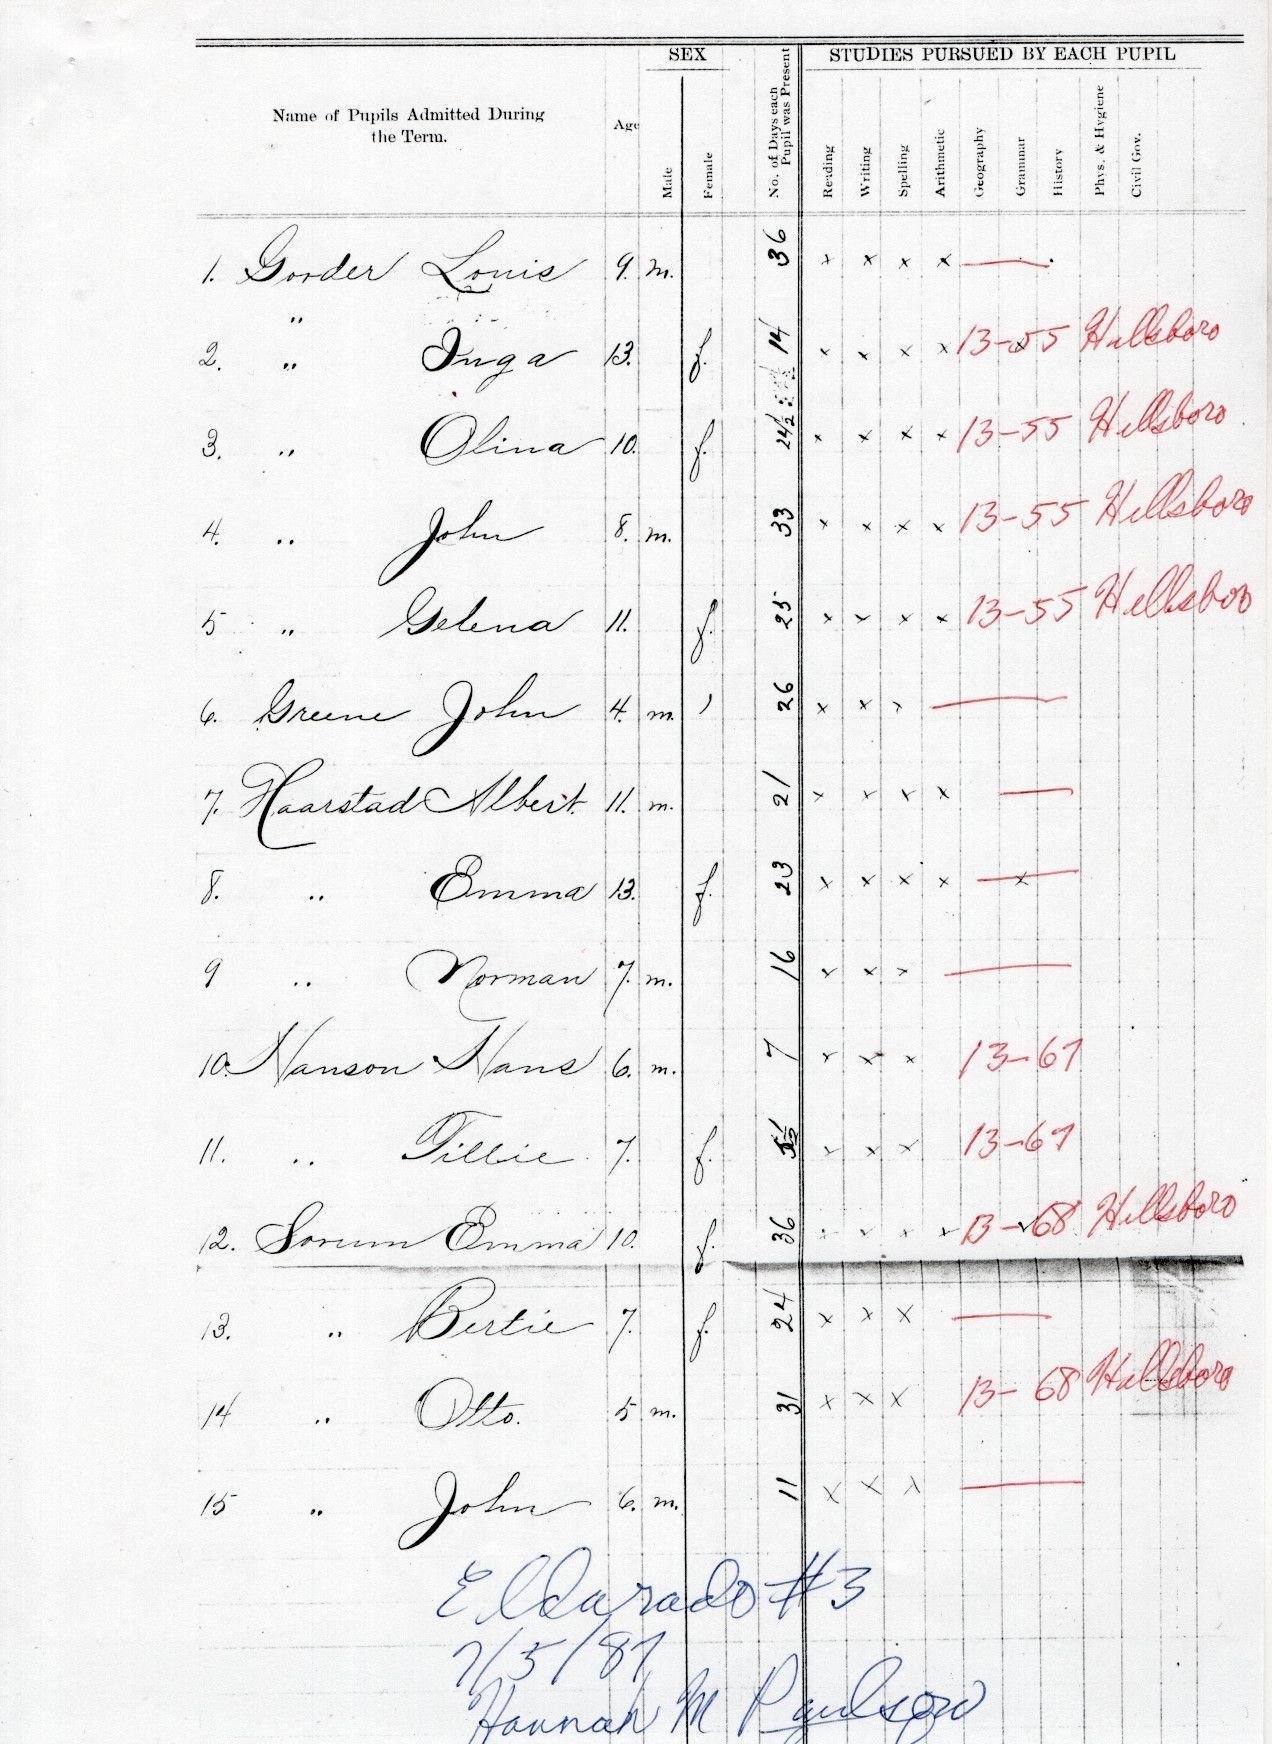 SEX STUDIES PURSUED BY EACH PUPIL
Name of Pupils Admitted During
the Term.
Age Male Female No. of Days each Pupil was Present Reading Writing Spelling Arithmetic Geography Grammar History Phys. & Hygiene Civil Gov.
1. Gorder Louis 9. m. 36 x x x x
"
2. " Inga 13. f. 14 x x x x 13-55 Hillsboro
3. " Olina 10. f. 24½ x x x x 13-55 Hillsboro
4. " John 8. m. 33 x x x x 13-55 Hillsboro
5 " Gelena 11. f. 25 x x x x 13-55 Hillsboro
6. Greene John 4. m. 26 x x x
7. Haarstad Albert. 11. m. 21 x x x x
8. " Emma 13. f. 23 x x x x x
9 " Norman 7. m. 16 x x x
10. Hanson Hans 6. m. 7 x x x 13-67
11. " Tillie 7. f. x x x 13-67
12. Sorum Emma 10. f. 36 x x x x 13-68 Hillsboro
13. " Bertie 7. f. 24 x x x
14 " Otto. 5 m. 31 x x x 13-68 Hillsboro
15 " John 6. m. 11 x x x
Eldorado #3
7/5/87
Hannah M Paulson